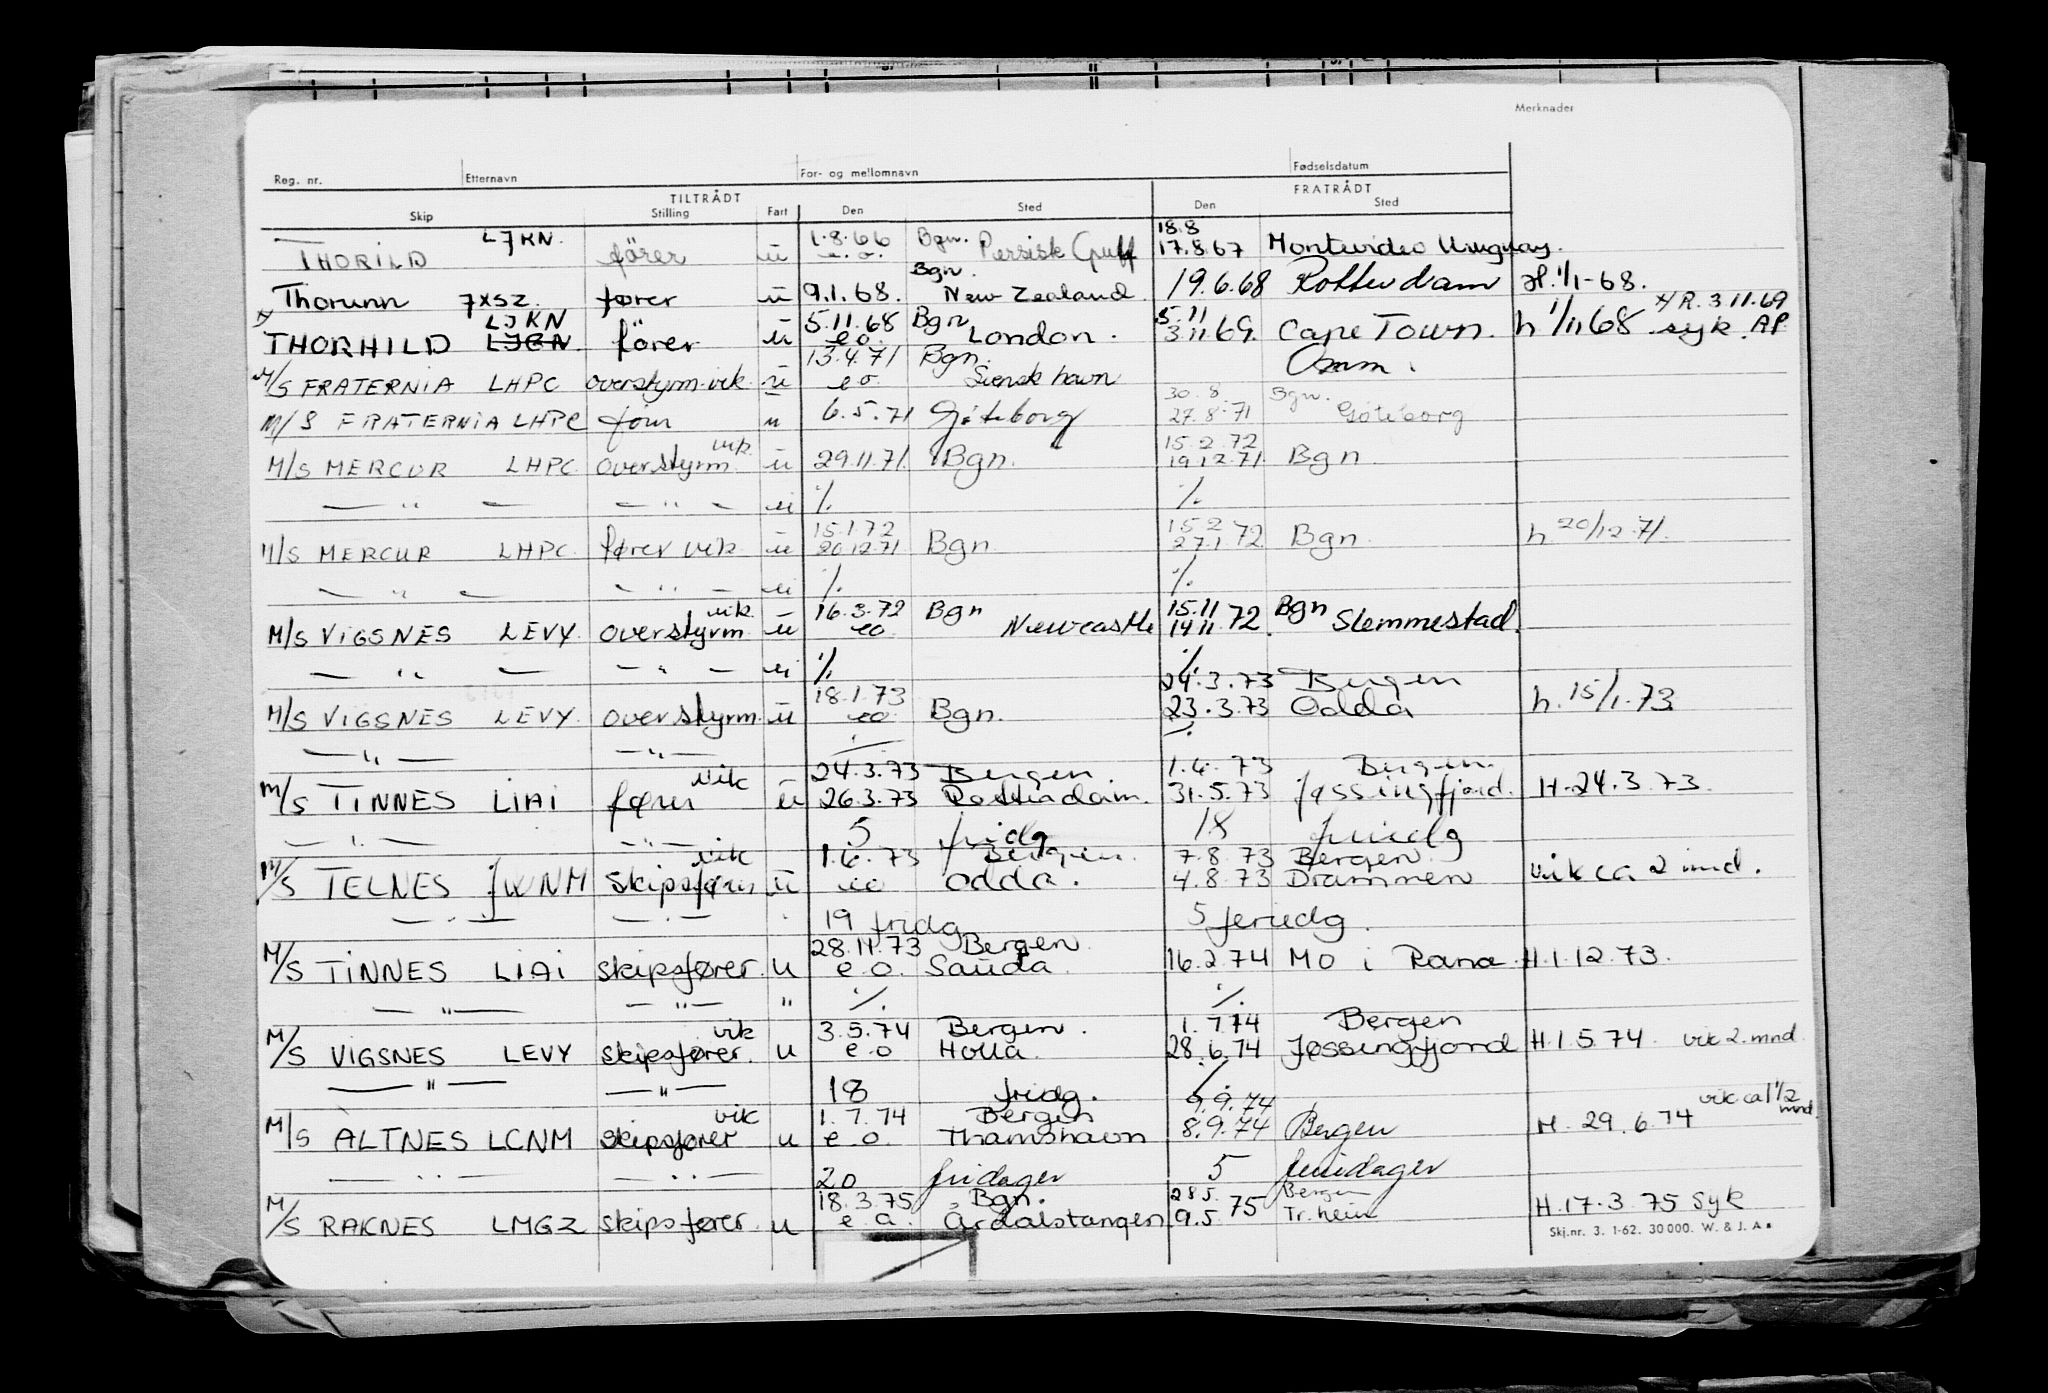 Merknader
Reg. nr. Etternavn For- og mellomnavn Fødselsdatum
TILTRÅDT FRATRÅDT
Skip Stilling Fart Den Sted Den Sted
LJKN. 1.8.66 Bgn. 18.8
THORILD fører u e.o. Persisk Gulf 17.8.67 Montevideo Uruguay.
Bgn.
Thorunn 7XSZ. fører u 9.1.68. New Zealand 19.6.68 Rotterdam H. 1/1-68.
LJKN 5.11.68 Bgn 5.11 H R. 3.11.69
THORHILD fører u e.o. London. 3.11.69. Cape Town. h 1/11 68. syk. AP
13.4.71 Bgn. Omm.
M/S FRATERNIA LHPC overstyrm. vik. u e.o. Svensk havn
30.8 Bgn.
M/S FRATERNIA LHPC u 6.5.71 Göteborg 27.8.71 Göteborg
vik. 15.2.72
M/S MERCUR LHPC overstyrm. u 29.11.71 Bgn. 19.12.71 Bgn
— " — — " — u ./. ./.
15.1.72 15.2
M/S MERCUR LHPC. fører vik u 20.12.71 Bgn 27.1.72 Bgn. h 20/12.71.
— " — — " — u ./. ./.
vik 16.3.72 Bgn 15.11 Bgn
M/S VIGSNES LEVY overstyrm u eo Newcastle 14.11.72. Slemmestad.
— " — — " — u ./. ./.
18.1.73 24.3.73 Bergen
M/S VIGSNES LEVY. overstyrm. u eo. Bgn. 23.3.73 Odda h. 15/1.73
— " — — " — ./. ./.
vik 24.3.73 Bergen. 1.6.73 Bergen.
M/S TINNES LIAI fører u 26.3.73 Rotterdam. 31.5.73 Jøssingfjord. H. 24.3.73.
— " — — " — 5 fridg 18 feriedg
vik 1.6.73 Bergen. 7.8.73 Bergen.
M/S TELNES JWNM skipsfører u eo Odda. 4.8.73 Drammen vik ca. 2 mnd.
— " — — " — 19 fridg 5 feriedg.
28.11.73 Bergen
M/S TINNES LIAI skipsfører. u e.o. Sauda. 16.2.74 MO i Rana H.1.12.73.
— " — — " — " ./. ./.
vik 3.5.74 Bergen. 1.7.74 Bergen
M/S VIGSNES LEVY skipsfører. u e.o Holla. 28.6.74 Jøssingfjord H.1.5.74. vik 2. mnd.
— " — — " — 18 fridg. ./.
vik 1.7.74 Bergen 9.9.74 vik ca 1 1/2 mnd
M/S ALTNES LCNM skipsfører u e.o. Thamshavn 8.9.74 Bergen H. 29.6.74
— " — — " — 20 fridager 5 feriedager
18.3.75 Bgn. 28.5. Bergen
M/S RAKNES LMGZ skipsfører. u e.a. Årdalstangen 9.5.75 Tr.heim H.17.3.75 syk
Skj.nr. 3. 1-62. 30 000. W. & J. A s